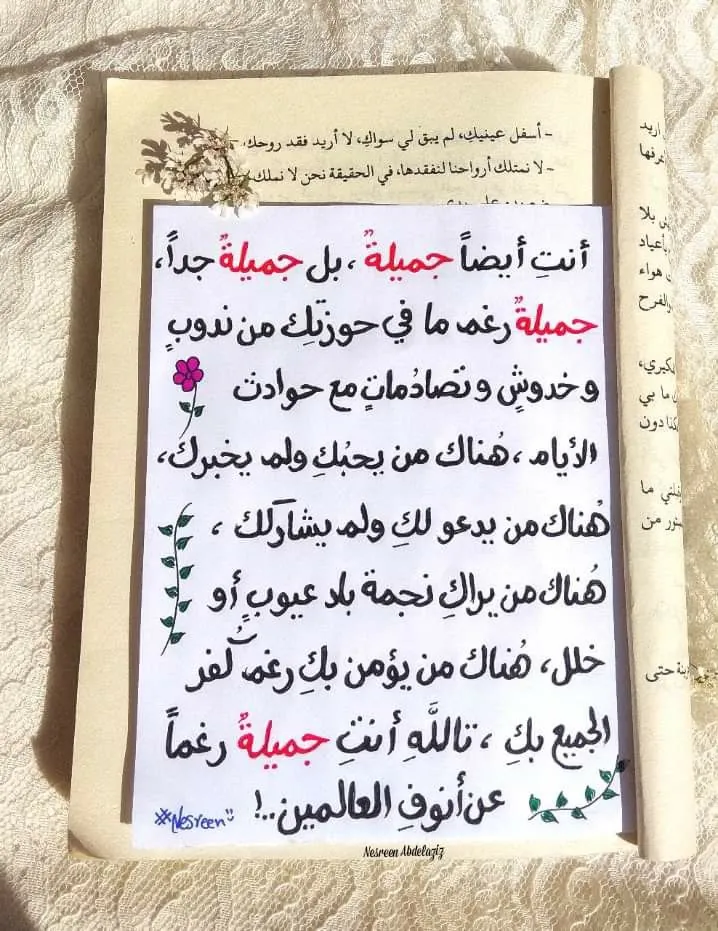 - أسفل عينيكِ، لم يبق لي سواكِ، لا أريد فقد روحك.
- لا نمتلك أرواحنا لنفقدها، في الحقيقة نحن لا نملك
أنتِ أيضاً جميلةٌ، بل جميلةٌ جداً،
جميلةٌ رغم ما في حوزتكِ من ندوبٍ
وخدوشٍ وتصادُماتٍ مع حوادث
الأيام، هُناك من يحبُكِ ولم يخبرك،
هُناك من يدعو لكِ ولم يشارَكك،
هُناك من يراكِ نجمة بلا عيوبٍ أو
خلل، هُناك من يؤمن بكِ رغم كُفر
الجميع بكِ، تاللَّهِ أنتِ جميلةٌ رغماً
عن أنوفِ العالمين..!
#Nesreen
Nesreen Abdelaziz
اريد
بلا
بأعياد
هواء
والفرح
ما بي
دون
ما
من
حتى